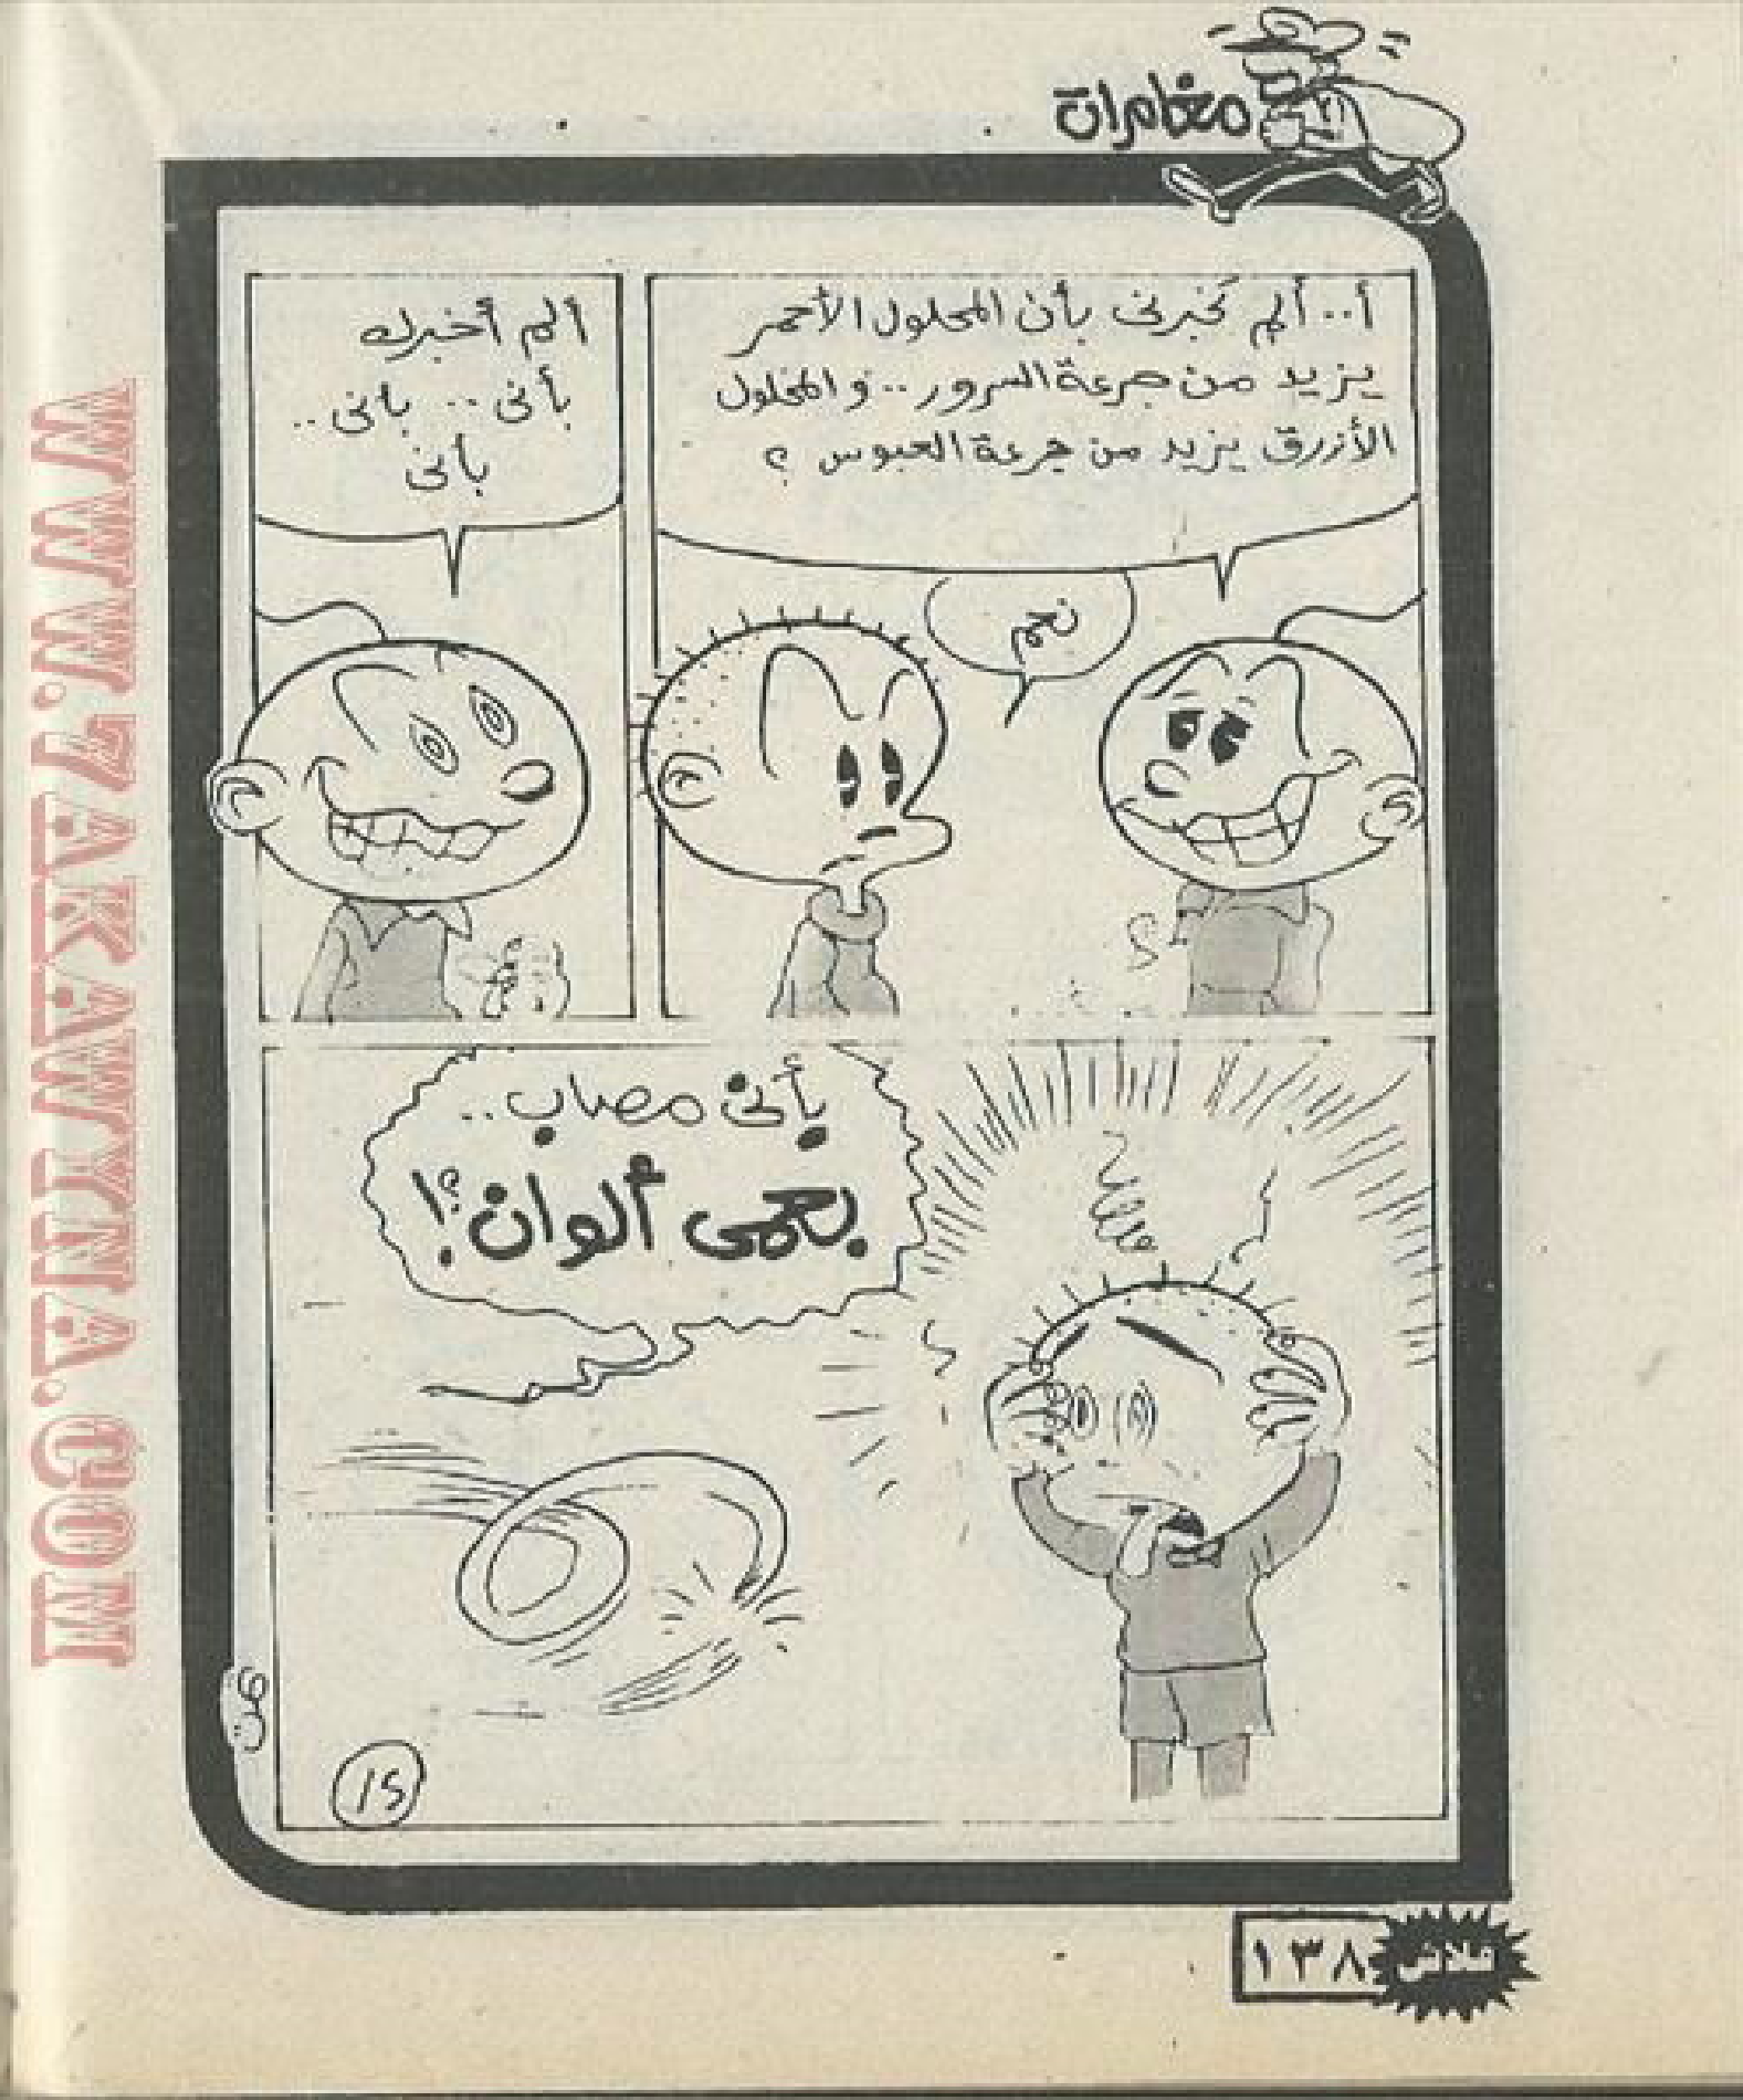 مغامرات
أ.. ألم تخبرنى بأن المحلول الأحمر
يزيد من جرعة السرور.. و المحلول
الأزرق يزيد من جرعة العبوس ؟
نعم
ألم أخبرك
بأنى .. بأنى ..
بأنى
بأنى مصاب..
بعمى ألوان؟!
١٢
فلاش
١٣٨
WWW.ZAKAWAWINA.COM